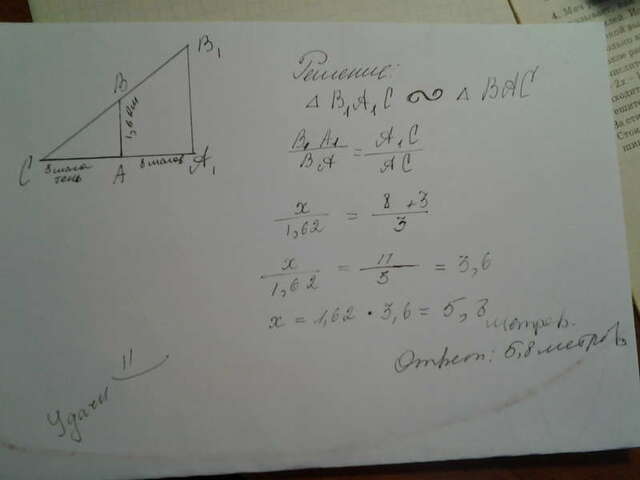 B₁
B
1,62 м
C
3 шага
тень
A
8 шагов
A₁
Решение:
△ B₁A₁C ∾ △ BAC
B₁A₁ / BA = A₁C / AC
x / 1,62 = 8+3 / 3
x / 1,62 = 11 / 3 = 3,6
x = 1,62 · 3,6 = 5,8 метров.
Ответ: 5,8 метров
Удачи
4. Меч